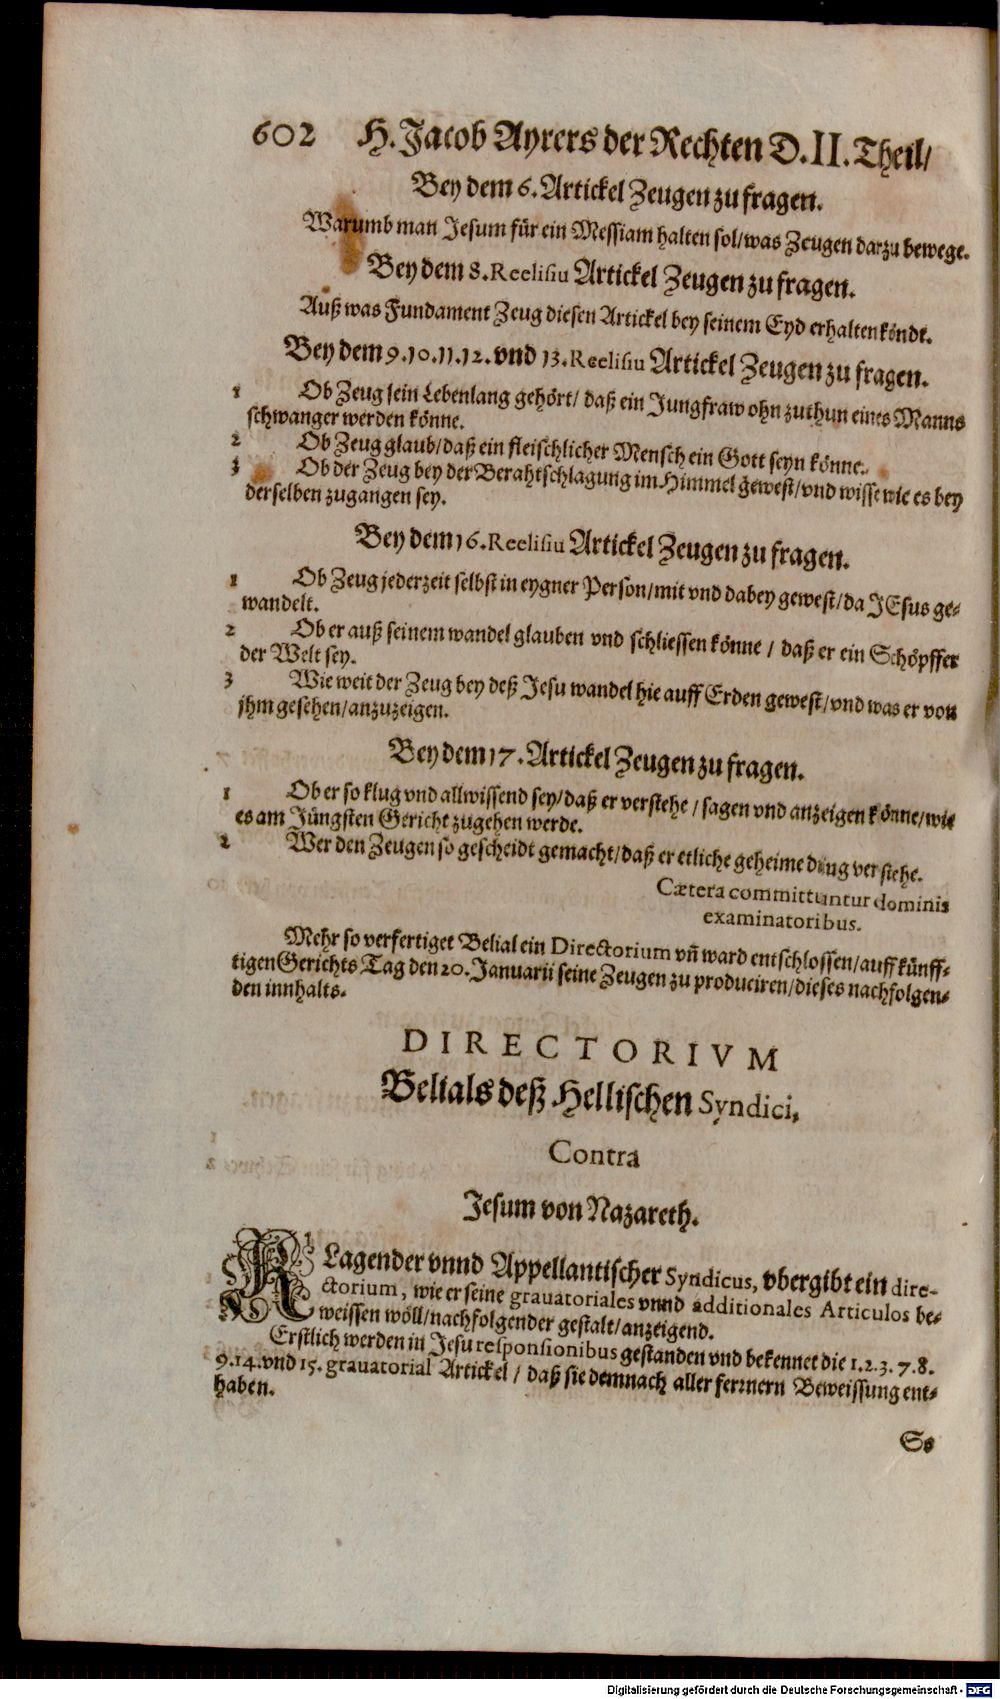 602 H. Jacob Ayrers der Rechten D. II. Theil/
Bey dem 6. Artickel Zeugen zu fragen.
Warumb man Jesum für ein Messiam halten sol/was Zeugen darzu bewege.
Bey dem 8. Reelisiu Artickel Zeugen zu fragen.
Auß was Fundament Zeug diesen Artickel bey seinem Eyd erhalten köndt.
Bey dem 9. 10. 11. 12. vnd 13. Reelisiu Artickel Zeugen zu fragen.
1 Ob Zeug sein Lebenlang gehört/ daß ein Jungfraw ohn zuthun eines Manns
schwanger werden könne.
2 Ob Zeug glaub/daß ein fleischlicher Mensch ein Gott seyn könne.
3 Ob der Zeug bey der Berahtschlagung im Himmel gewest/vnd wisse wie es bey
derselben zugangen sey.
Bey dem 16. Reelisiu Artickel Zeugen zu fragen.
1 Ob Zeug jederzeit selbst in eygner Person/mit vnd dabey gewest/da JEsus ge-
wandelt.
2 Ob er auß seinem wandel glauben vnd schliessen könne / daß er ein Schöpffer
der Welt sey.
3 Wie weit der Zeug bey deß Jesu wandel hie auff Erden gewest/vnd was er von
jhm gesehen/anzuzeigen.
Bey dem 17. Artickel Zeugen zu fragen.
1 Ob er so klug vnd allwissend sey/daß er verstehe / sagen vnd anzeigen könne/wie
es am Jüngsten Gericht zugehen werde.
2 Wer den Zeugen so gescheidt gemacht/daß er etliche geheime ding verstehe.
Cætera committuntur dominis
examinatoribus.
Mehr so verfertiget Belial ein Directorium vñ ward entschlossen/auff künff-
tigen Gerichts Tag den 20. Januarii seine Zeugen zu produciren/dieses nachfolgen-
den innhalts.
DIRECTORIVM
Belials deß Hellischen Syndici,
Contra
Jesum von Nazareth.
1
KLagender vnnd Appellantischer Syndicus, vbergibt ein dire-
ctorium, wie er seine grauatoriales vnnd additionales Articulos be-
weissen wöll/nachfolgender gestalt/anzeigend.
Erstlich werden in Jesu responsionibus gestanden vnd bekennet die 1. 2. 3. 7. 8.
9. 14. vnd 15. grauatorial Artickel / daß sie demnach aller fernern Beweissung ent-
haben.
So
Digitalisierung gefördert durch die Deutsche Forschungsgemeinschaft - DFG